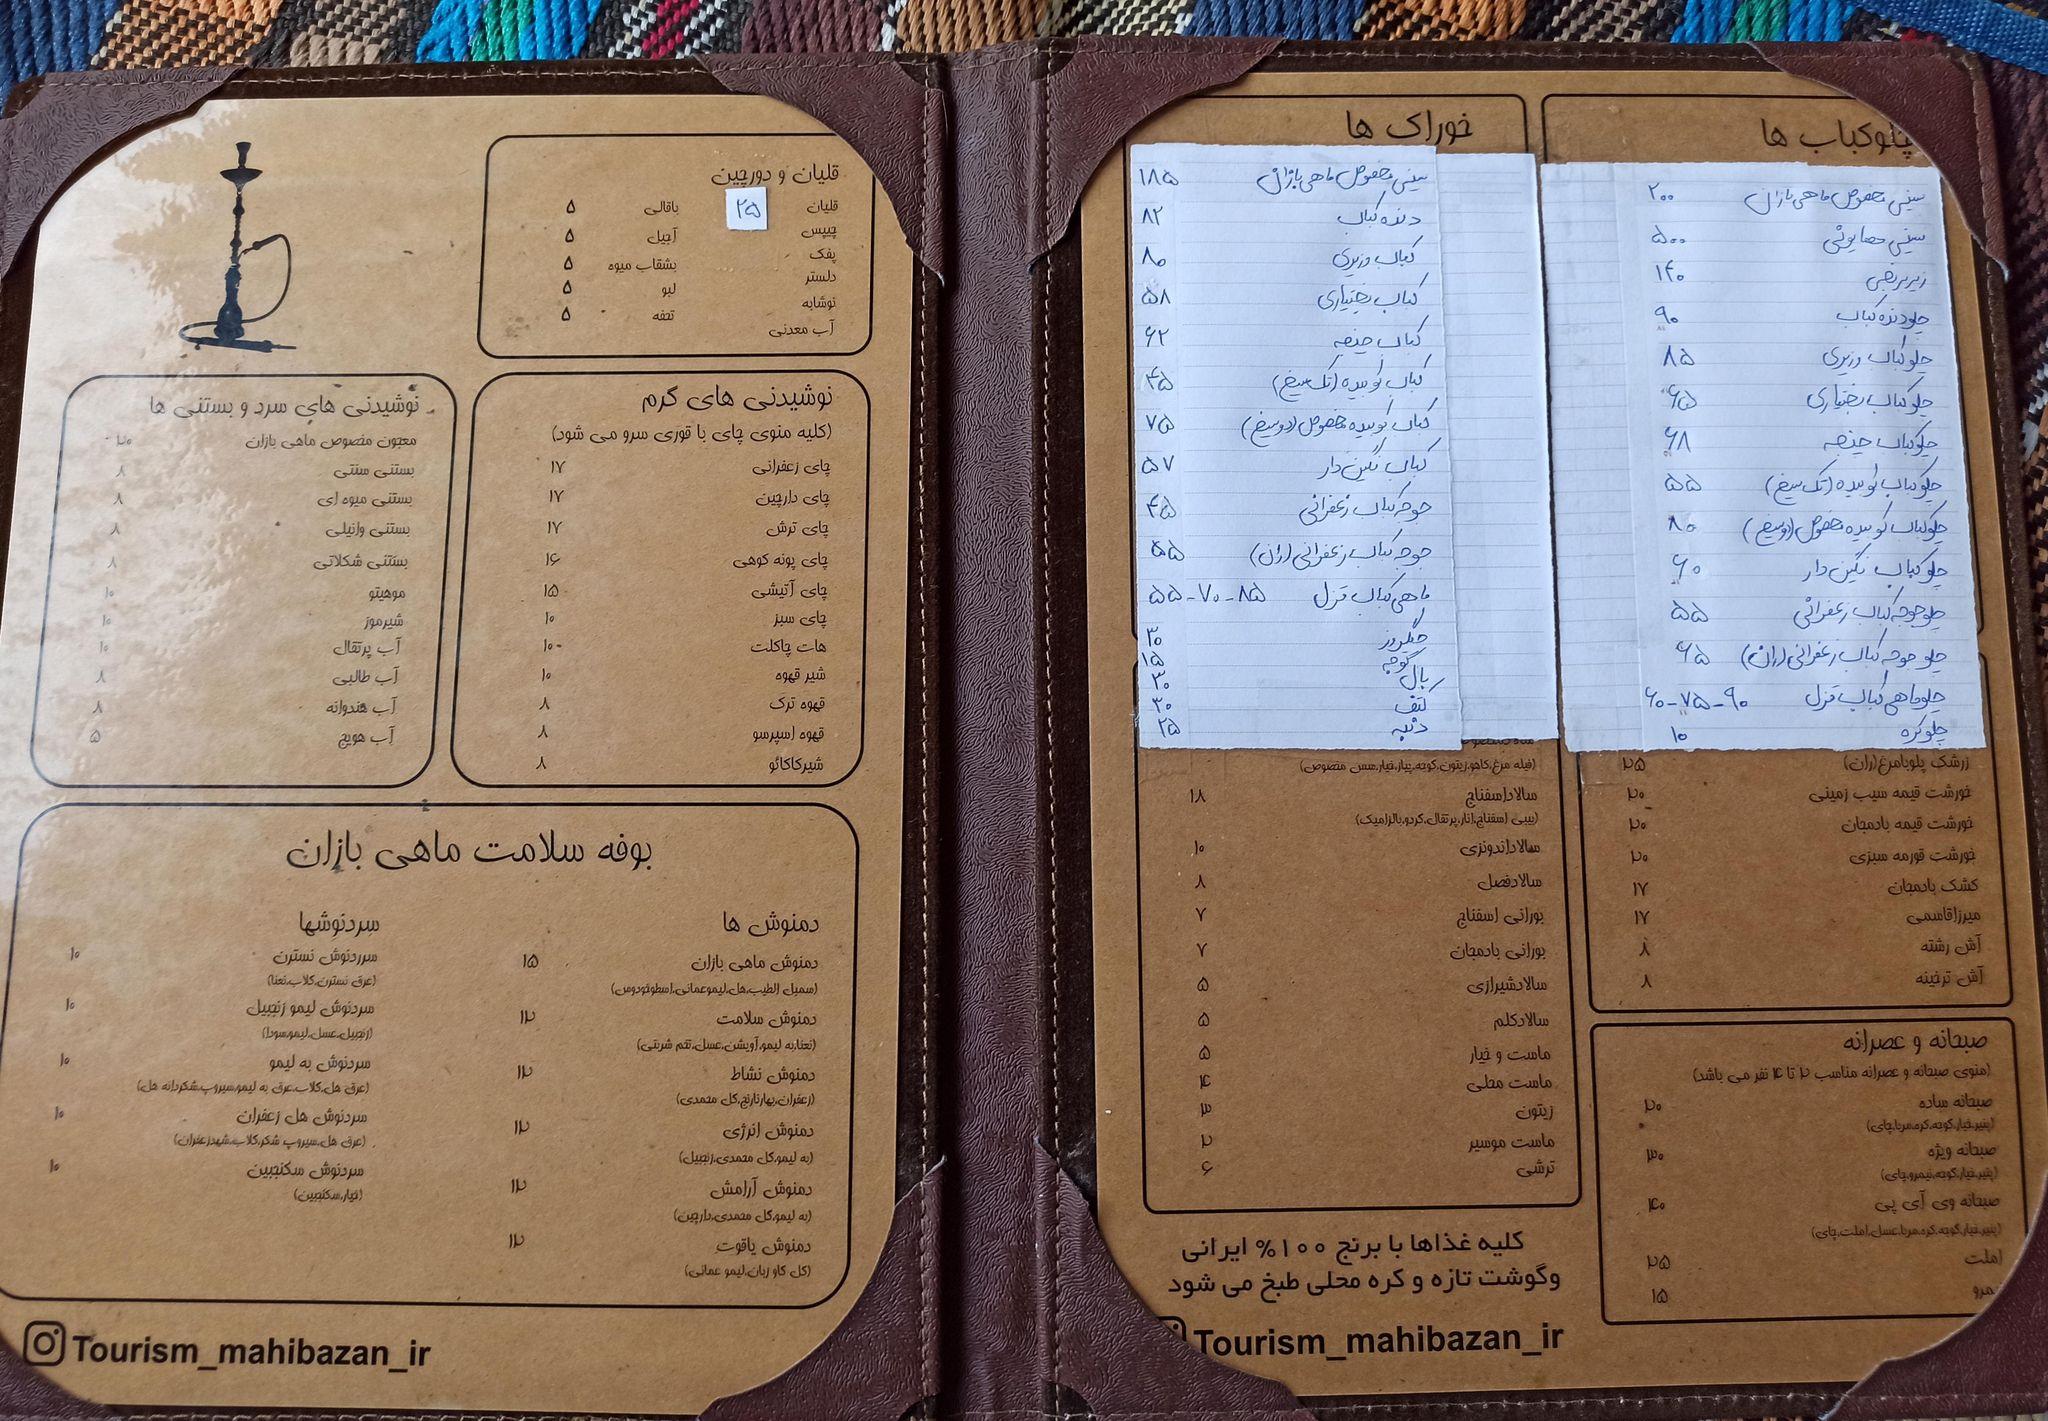 چلوکباب ها
سینی مخصوص ماهی بازان ۲۰۰
سینی همایونی ۵۰۰
زیربرنجی ۱۴۰
چلودنده کباب ۹۰
چلوکباب وزیری ۸۵
چلوکباب بختیاری ۶۵
چلوکباب چنجه ۶۸
چلوکباب کوبیده (تک سیخ) ۵۵
چلوکباب کوبیده مخصوص (دو سیخ) ۸۰
چلوکباب نگین دار ۶۰
چلوجوجه کباب زعفرانی ۵۵
چلو جوجه کباب زعفرانی (ران) ۶۵
چلوماهی کباب قزل ۹۰-۷۵-۶۰
چلوکره ۱۰
زرشک پلوبامرغ(ران) ۲۵
خورشت قیمه سیب زمینی ۲۰
خورشت قیمه بادمجان ۲۰
خورشت قورمه سبزی ۲۰
کشک بادمجان ۱۷
میرزاقاسمی ۱۷
آش رشته ۸
آش ترخینه ۸
صبحانه و عصرانه
(منوی صبحانه و عصرانه مناسب ۲ تا ۴ نفر می باشد)
صبحانه ساده ۲۰
(پنیر,خیار,گوجه,کره,مربا,چای)
صبحانه ویژه ۳۰
(پنیر,خیار,گوجه,نیمرو,چای)
صبحانه وی آی پی ۴۰
(پنیر,خیار,گوجه,کره,مربا,عسل,املت,چای)
املت ۲۵
۱۵
خوراک ها
سینی مخصوص ماهی بازان ۱۸۵
دنده کباب ۸۲
کباب وزیری ۸۰
کباب بختیاری ۵۸
کباب چنجه ۶۲
کباب کوبیده (تک سیخ) ۴۵
کباب کوبیده مخصوص (دو سیخ) ۷۵
کباب نگین دار ۵۷
جوجه کباب زعفرانی ۴۵
جوجه کباب زعفرانی (ران) ۵۵
ماهی کباب قزل ۸۵-۷۰-۵۵
جگروز ۳۰
گوجه ۱۵
بال ۳۰
کتف ۳۰
دنبه ۲۵
(فیله مرغ,کاهو,زیتون,گوجه,پیاز,خیار,سس مخصوص)
سالاداسفناج ۱۸
(بیبی اسفناج,انار,پرتقال,گردو,بالزامیک)
سالاداندونزی ۱۰
سالادفصل ۸
بورانی اسفناج ۷
بورانی بادمجان ۷
سالادشیرازی ۵
سالادکلم ۵
ماست و خیار ۵
ماست محلی ۴
زیتون ۳
ماست موسیر ۲
ترشی ۶
کلیه غذاها با برنج ۱۰۰% ایرانی
وگوشت تازه و کره محلی طبخ می شود
Tourism_mahibazan_ir
قلیان و دورچین
قلیان ۲۵ باقالی ۵
چیپس آجیل ۵
پفک بشقاب میوه ۵
دلستر لبو ۵
نوشابه تحفه ۵
آب معدنی
نوشیدنی های گرم
(کلیه منوی چای با قوری سرو می شود)
چای زعفرانی ۱۷
چای دارچین ۱۷
چای ترش ۱۷
چای پونه کوهی ۱۶
چای آتیشی ۱۵
چای سبز ۱۰
هات چاکلت ۱۰
شیر قهوه ۱۰
قهوه ترک ۸
قهوه اسپرسو ۸
شیرکاکائو ۸
نوشیدنی های سرد و بستنی ها
معجون مخصوص ماهی بازان ۲۰
بستنی سنتی ۸
بستنی میوه ای ۸
بستنی وانیلی ۸
بستنی شکلاتی ۸
موهیتو ۱۰
شیرموز ۱۰
آب پرتقال ۱۰
آب طالبی ۸
آب هندوانه ۸
آب هویج ۵
بوفه سلامت ماهی بازان
دمنوش ها
دمنوش ماهی بازان ۱۵
(سمبل الطیب,هل,لیموعمانی,اسطوخودوس)
دمنوش سلامت ۱۲
(نعنا,به لیمو,آویشن,عسل,تخم شربتی)
دمنوش نشاط ۱۲
(زعفران,بهارنارنج,گل محمدی)
دمنوش انرژی ۱۲
(به لیمو,گل محمدی,زنجبیل)
دمنوش آرامش ۱۲
(به لیمو,گل محمدی,دارچین)
دمنوش یاقوت ۱۲
(گل گاو زبان,لیمو عمانی)
سردنوشها
سردنوش نسترن ۱۰
(عرق نسترن,گلاب,نعنا)
سردنوش لیمو زنجبیل ۱۰
(زنجبیل,عسل,لیمو,سودا)
سردنوش به لیمو ۱۰
(عرق هل,گلاب,عرق به لیمو,سیروپ,شکردانه هل)
سردنوش هل زعفران ۱۰
(عرق هل,سیروپ شکر,گلاب,شهدزعفران)
سردنوش سکنجبین ۱۰
(خیار,سکنجبین)
Tourism_mahibazan_ir